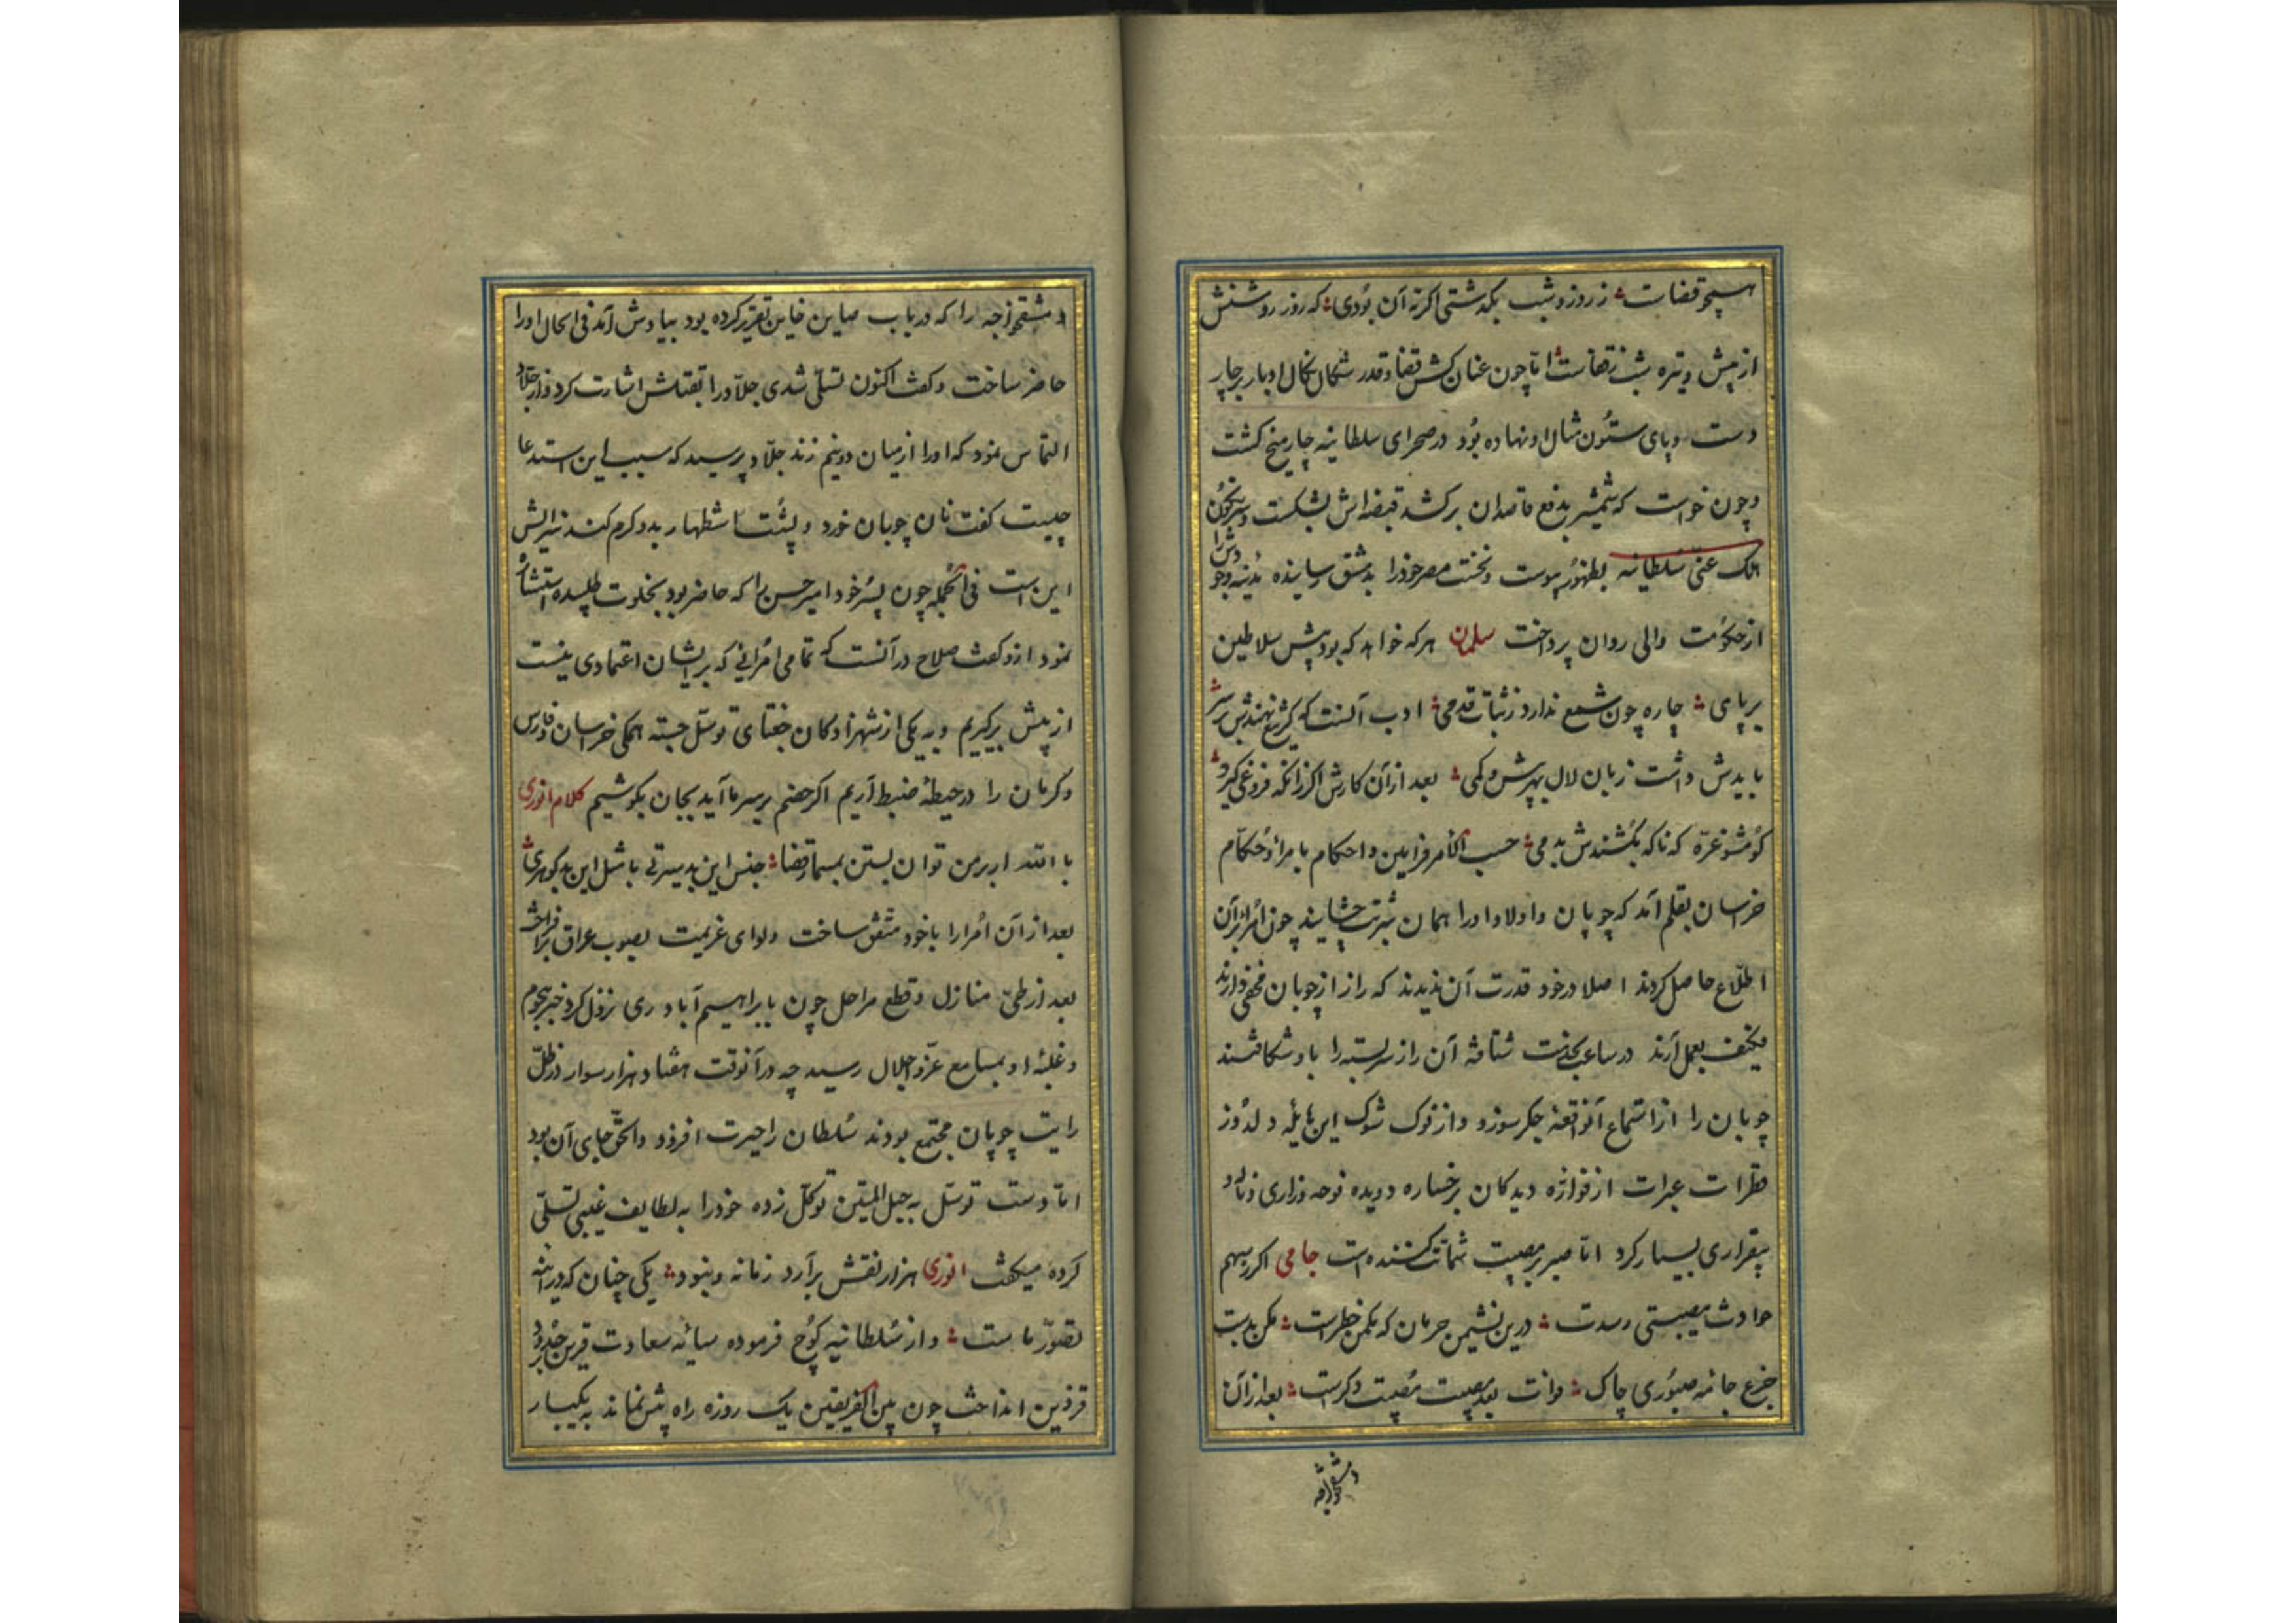 هیچو قضات ز روز و شب بگذشتی اگر نه آن بودی که روز روشنش
از پیش و تیره شب ز قفاست اما چون عنان کش قضا و قدر شکال نکال ادبار بر چار
دست و پای ستون مثال او نهاده بود در صحرای سلطانیه چارمیخ کشت
و چون خواست که شمشیر بدفع قاصدان برکشد قبضه اش بشکست و سر نکون
الک عنی سلطانیه بظهور پیوست و نخست مصر خود را بدمشق رسانیده مدینه وجودش را
از حکومت والی روان پرداخت سلمان هر که خواهد که بود پیش سلاطین
بر پای چاره چون شمع ندارد ز ثبات قدمی ادب آنست که کر تیغ نهندش بر سر
بایدش داشت زبان لال بهر بیش و کمی بعد از آن کارش اکر زانکه فروغی کیرد
کو مشو غره که ناکه بکشندش بدمی حسب الامر فرامین و احکام بامرا و حکام
خراسان بقلم آمد که چوپان و اولاد او را همان شربت چشانند چون امرا بر آن
اطلاع حاصل کردند اصلا در خود قدرت آن ندیدند که راز از چوپان مخفی دارند
بعمل آرند در ساعت بخدمت شتافته آن راز سربسته را با او شکافتند
چوپان را از استماع آن واقعهٔ جکرسوز و از نوک شوک این هایله دلدوز
قطرات عبرات از فواره دیدکان بر خساره دویده نوحه و زاری و ناله و
بیقراری بسیار کرد اما صبر بر مصیبت شماتت کننده است جامی اکر ز سهم
حوادث مصیبتی رسدت درین نشیمن حرمان که مکمن خطر است مکن بدست
جزع جامه صبوری چاک که فوات بعد مصیبت مصیبت دکر است بعد از آن
دمشق خواجه
دمشق خواجه را که در باب صاین خاین تقریر کرده بود بیادش آمد فی الحال او را
حاضر ساخت و کفت اکنون تسلی شدی جلاد را بقتلش اشارت کرد و از جلاد
التماس نمود که او را از میان دو نیم زند جلاد پرسید که سبب این استدعا
چیست کفت نان چوپان خورد و پشت استظهار بدو کرم کند سزایش
این است فی الجمله چون پسر خود امیر حسن را که حاضر بود بخلوت طلبیده استشاره
نمود ازو کفت صلاح در آنست که تمامی امرائی که بر ایشان اعتمادی نیست
از پیش برکیریم و به یکی از شهزادکان جغتای توسل جسته همکی خراسان و فارس
و کرمان را در حیطهٔ ضبط آریم اکر خصم بر سر ما آید بجان بکوشیم کلام انوری
با الله ار بر من توان بستن بمسمار قضا جنس این بد سیرتی یا مثل این بد کوهری
بعد از آن امرا را با خود متفق ساخت و لوای عزیمت بصوب عراق برافراخت
بعد از طی منازل و قطع مراحل چون بابراهیم آباد ری نزول کرد خبر هجوم
و غلبهٔ او بمسامع عز و اجلال رسید چه در آنوقت هفتاد هزار سوار در ظل
رایت چوپان مجتمع بودند سلطان را حیرت افزود و الحق جای آن بود
اما دست توسل به حبل المتین توکل زده خود را به لطایف غیبی تسلی
کرده میکفت انوری هزار نقش برآرد زمانه و نبود یکی چنان که در آینه
تصور ماست و از سلطانیه کوچ فرموده سایه سعادت قرین بر حدود
قزوین انداخت چون بین الفریقین یک روزه راه بیش نماند به یکبار